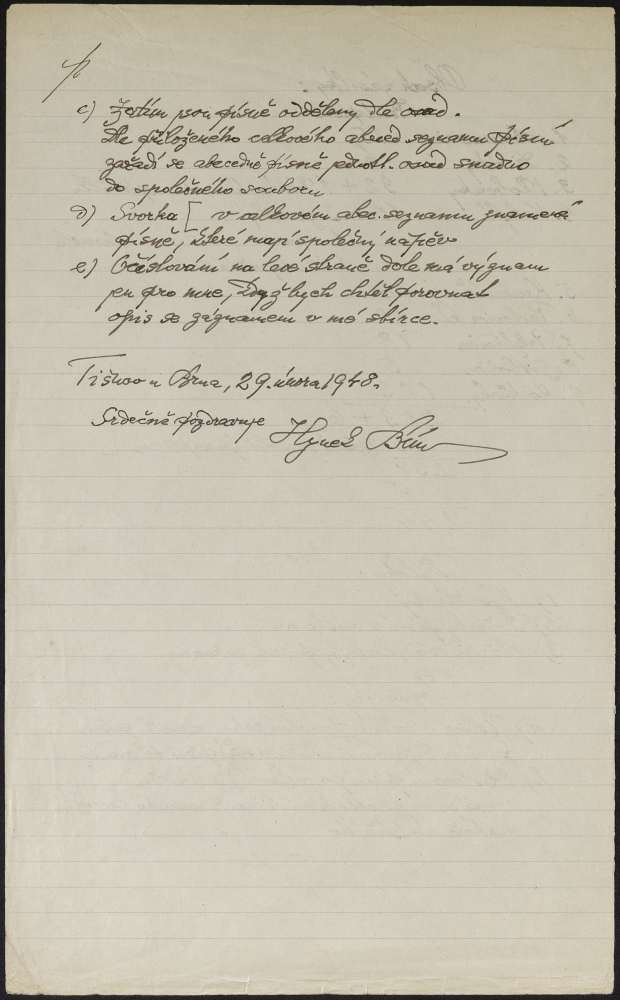 c) Zatím jsou písně odděleny dle osad.
Dle přiloženého celkového abeced. seznamu písní
zařadí se abecedně písně jednotl. osad snadno
do společného souboru
d) Svorka [ v celkovém abec. seznamu znamená
písně, které mají společný nápěv
e) Očíslování na levé straně dole má význam
jen pro mne, kdyžbych chtěl porovnat
opis se záznamem v mé sbírce.
Tišnov u Brna, 29. února 1948.
Srdečně pozdravuje Hynek Bím